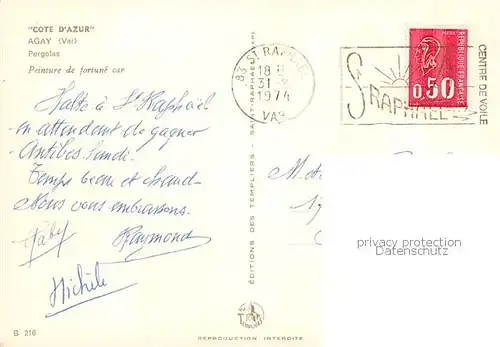 "COTE D'AZUR"
AGAY (Var)
Pergolas
Peinture de fortuné car
Halte à St Raphaël
en attendant de gagner
Antibes lundi.
Temps beau et chaud.
Nous vous embrassons.
Gaby Raymond
Michèle
B 216
EDITIONS DES TEMPLIERS - SAINT-RAPHAEL
REPRODUCTION INTERDITE
83 ST RAPHAEL
18 H
31
1974
VAR
ST RAPHAEL
CENTRE DE VOILE
REPUBLIQUE FRANÇAISE
0,50
privacy protection
Datenschutz